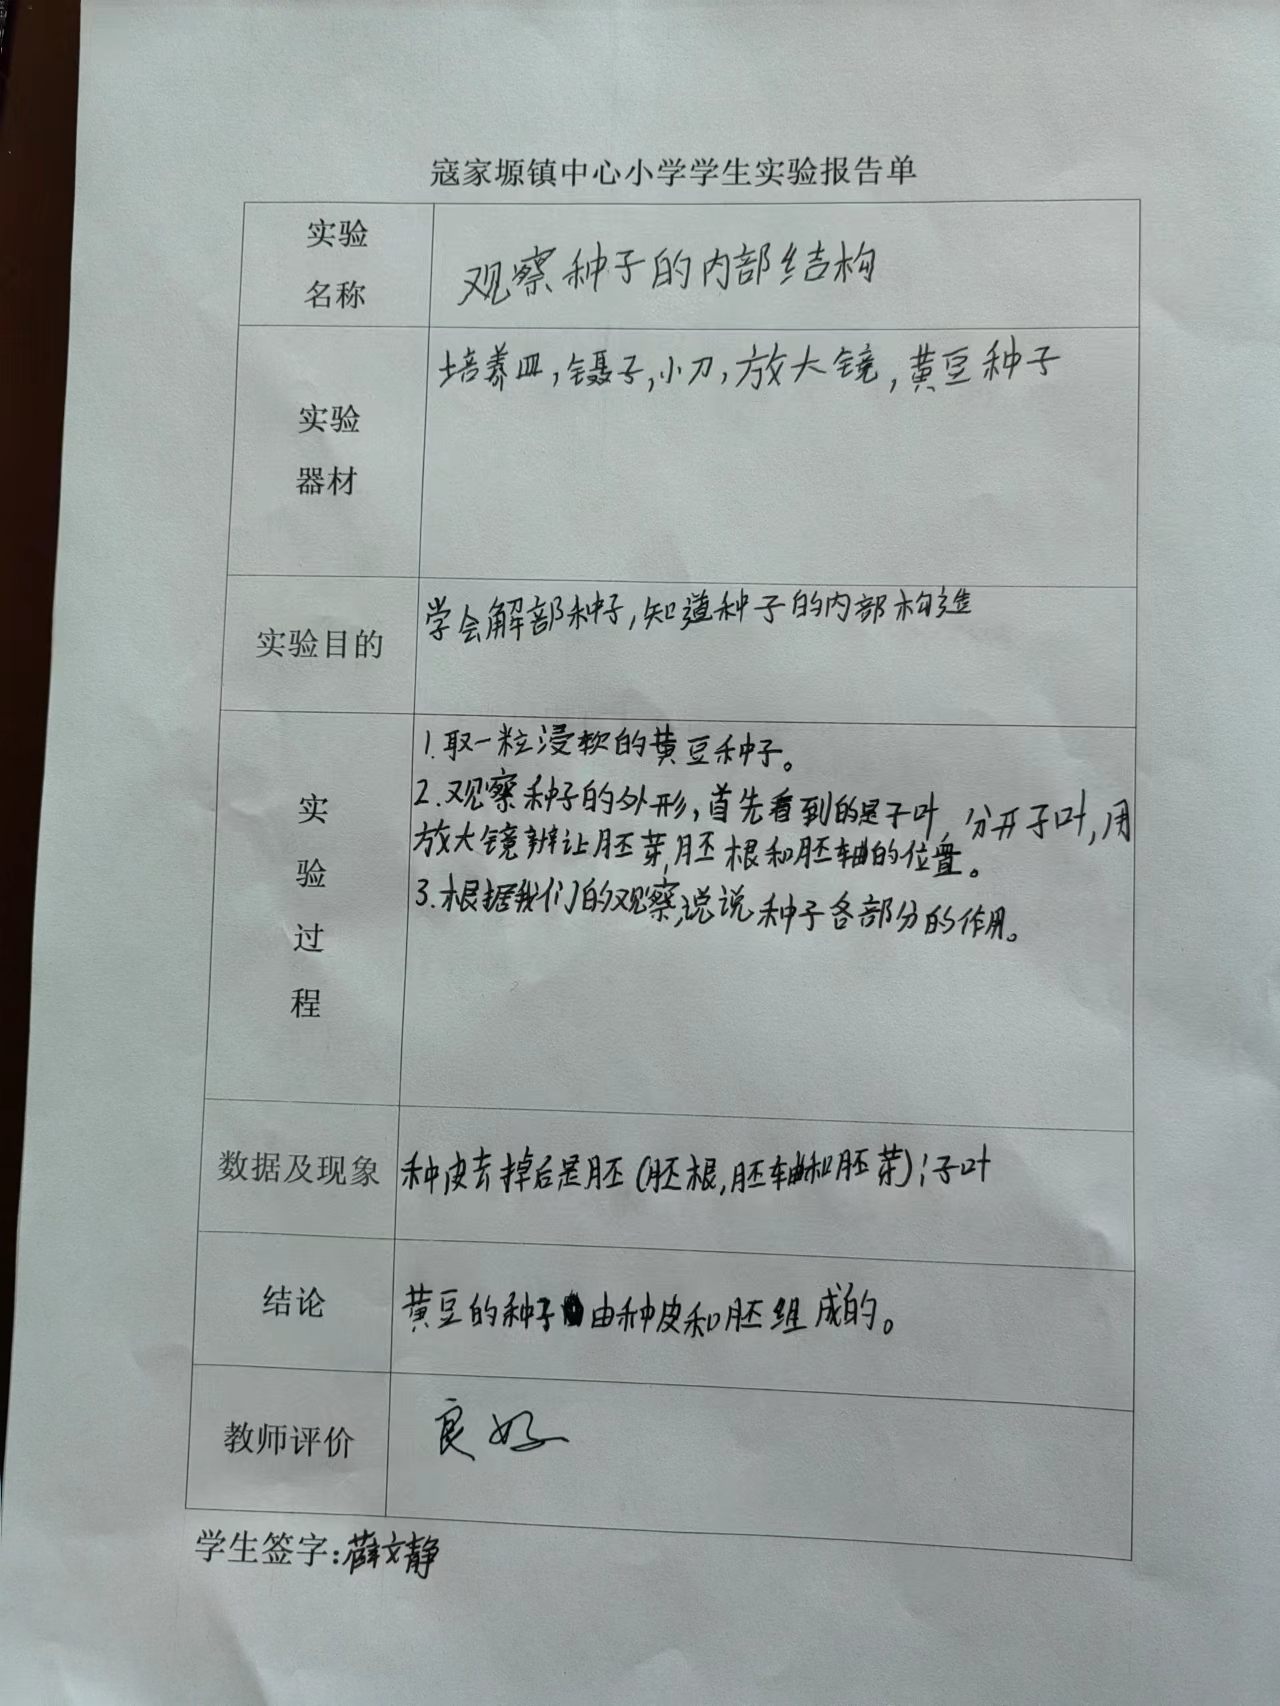 寇家塬镇中心小学学生实验报告单
实验
名称
观察种子的内部结构
实验
器材
培养皿,镊子,小刀,放大镜,黄豆种子
实验目的
学会解部种子,知道种子的内部构造
实
验
过
程
1.取一粒浸软的黄豆种子。
2.观察种子的外形,首先看到的是子叶,分开子叶,用
放大镜辨让胚芽,胚根和胚轴的位置。
3.根据我们的观察,说说种子各部分的作用。
数据及现象
种皮去掉后是胚(胚根,胚轴和胚芽);子叶
结论
黄豆的种子由种皮和胚组成的。
教师评价
良好
学生签字:薛文静